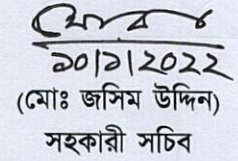 ১০|১|2022
(মোঃ জসিম উদ্দিন)
সহকারী সচিব